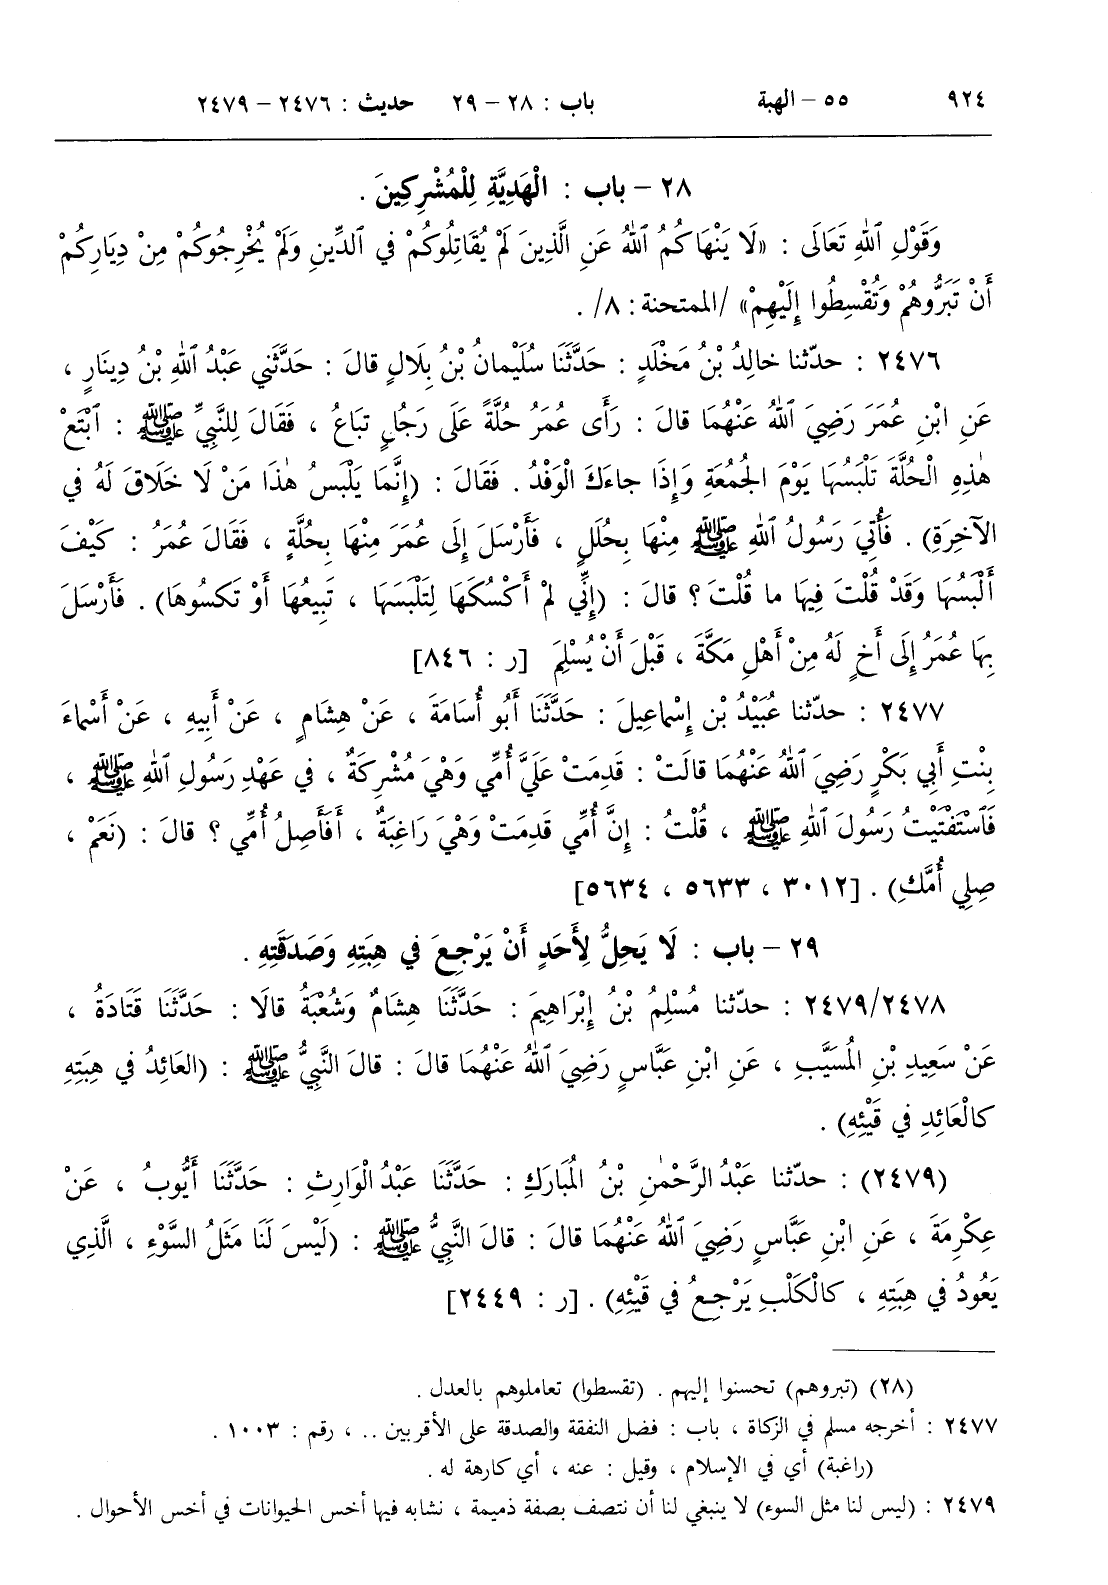 ٩٢٤ ٥٥ – الهبة باب : ٢٨ – ٢٩ حديث : ٢٤٧٦ – ٢٤٧٩
٢٨ – باب : الْهَدِيَّةِ لِلْمُشْرِكِينَ .
وَقَوْلِ اللهِ تَعَالَى : «لَا يَنْهَاكُمُ اللهُ عَنِ الَّذِينَ لَمْ يُقَاتِلُوكُمْ فِي الدِّينِ وَلَمْ يُخْرِجُوكُمْ مِنْ دِيَارِكُمْ
أَنْ تَبَرُّوهُمْ وَتُقْسِطُوا إِلَيْهِمْ» /الممتحنة : ٨/ .
٢٤٧٦ : حدّثنا خالِدُ بْنُ مَخْلَدٍ : حَدَّثَنَا سُلَيْمانُ بْنُ بِلَالٍ قالَ : حَدَّثَنِي عَبْدُ اللهِ بْنُ دِينَارٍ ،
عَنِ ابْنِ عُمَرَ رَضِيَ اللهُ عَنْهُمَا قالَ : رَأَى عُمَرُ حُلَّةً عَلَى رَجُلٍ تبَاعُ ، فَقَالَ لِلنَّبِيِّ ﷺ : ابْتَعْ
هٰذِهِ الْحُلَّةَ تَلْبَسُهَا يَوْمَ الجُمُعَةِ وَإِذَا جاءَكَ الْوَفْدُ . فَقَالَ : (إِنَّمَا يَلْبَسُ هٰذَا مَنْ لَا خَلَاقَ لَهُ فِي
الآخِرَةِ) . فَأُتِيَ رَسُولُ اللهِ ﷺ مِنْهَا بِحُلَلٍ ، فَأَرْسَلَ إِلَى عُمَرَ مِنْهَا بِحُلَّةٍ ، فَقَالَ عُمَرُ : كَيْفَ
أَلْبَسُهَا وَقَدْ قُلْتَ فِيهَا ما قُلْتَ ؟ قالَ : (إِنِّي لَمْ أَكْسُكَهَا لِتَلْبَسَهَا ، تَبِيعُهَا أَوْ تَكسُوهَا) . فَأَرْسَلَ
بِهَا عُمَرُ إِلَى أَخٍ لَهُ مِنْ أَهْلِ مَكَّةَ ، قَبْلَ أَنْ يُسْلِمَ [ر : ٨٤٦]
٢٤٧٧ : حدّثنا عُبَيْدُ بْن إِسْماعِيلَ : حَدَّثَنَا أَبُو أُسَامَةَ ، عَنْ هِشَامٍ ، عَنْ أَبِيهِ ، عَنْ أَسْماءَ
بِنْتِ أَبِي بَكْرٍ رَضِيَ اللهُ عَنْهُمَا قالَتْ : قَدِمَتْ عَلَيَّ أُمِّي وَهْيَ مُشْرِكَةٌ ، في عَهْدِ رَسُولِ اللهِ ﷺ ،
فَاسْتَفْتَيْتُ رَسُولَ اللهِ ﷺ ، قُلْتُ : إِنَّ أُمِّي قَدِمَتْ وَهْيَ رَاغِبَةٌ ، أَفَأَصِلُ أُمِّي ؟ قالَ : (نَعَمْ ،
صِلِي أُمَّكِ) . [٣٠١٢ ، ٥٦٣٣ ، ٥٦٣٤]
٢٩ – باب : لَا يَحِلُّ لِأَحَدٍ أَنْ يَرْجِعَ في هِبَتِهِ وَصَدَقَتِهِ .
٢٤٧٩/٢٤٧٨ : حدّثنا مُسْلِمُ بْنُ إِبْرَاهِيمَ : حَدَّثَنَا هِشَامٌ وَشُعْبَةُ قالَا : حَدَّثَنَا قَتَادَةُ ،
عَنْ سَعِيدِ بْنِ المُسَيَّبِ ، عَنِ ابْنِ عَبَّاسٍ رَضِيَ اللهُ عَنْهُمَا قالَ : قالَ النَّبِيُّ ﷺ : (العَائِدُ في هِبَتِهِ
كالْعَائِدِ في قَيْئِهِ) .
(٢٤٧٩) : حدّثنا عَبْدُ الرَّحْمٰنِ بْنُ المُبَارَكِ : حَدَّثَنَا عَبْدُ الْوَارِثِ : حَدَّثَنَا أَيُّوبُ ، عَنْ
عِكْرِمَةَ ، عَنِ ابْنِ عَبَّاسٍ رَضِيَ اللهُ عَنْهُمَا قالَ : قالَ النَّبِيُّ ﷺ : (لَيْسَ لَنَا مَثَلُ السَّوْءِ ، الَّذِي
يَعُودُ في هِبَتِهِ ، كالْكَلْبِ يَرْجِعُ في قَيْئِهِ) . [ر : ٢٤٤٩]
(٢٨) (تبروهم) تحسنوا إليهم . (تقسطوا) تعاملوهم بالعدل .
٢٤٧٧ : أخرجه مسلم في الزكاة ، باب : فضل النفقة والصدقة على الأقربين .. ، رقم : ١٠٠٣ .
(راغبة) أي في الإسلام ، وقيل : عنه ، أي كارهة له .
٢٤٧٩ : (ليس لنا مثل السوء) لا ينبغي لنا أن نتصف بصفة ذميمة ، نشابه فيها أخس الحيوانات في أخس الأحوال .